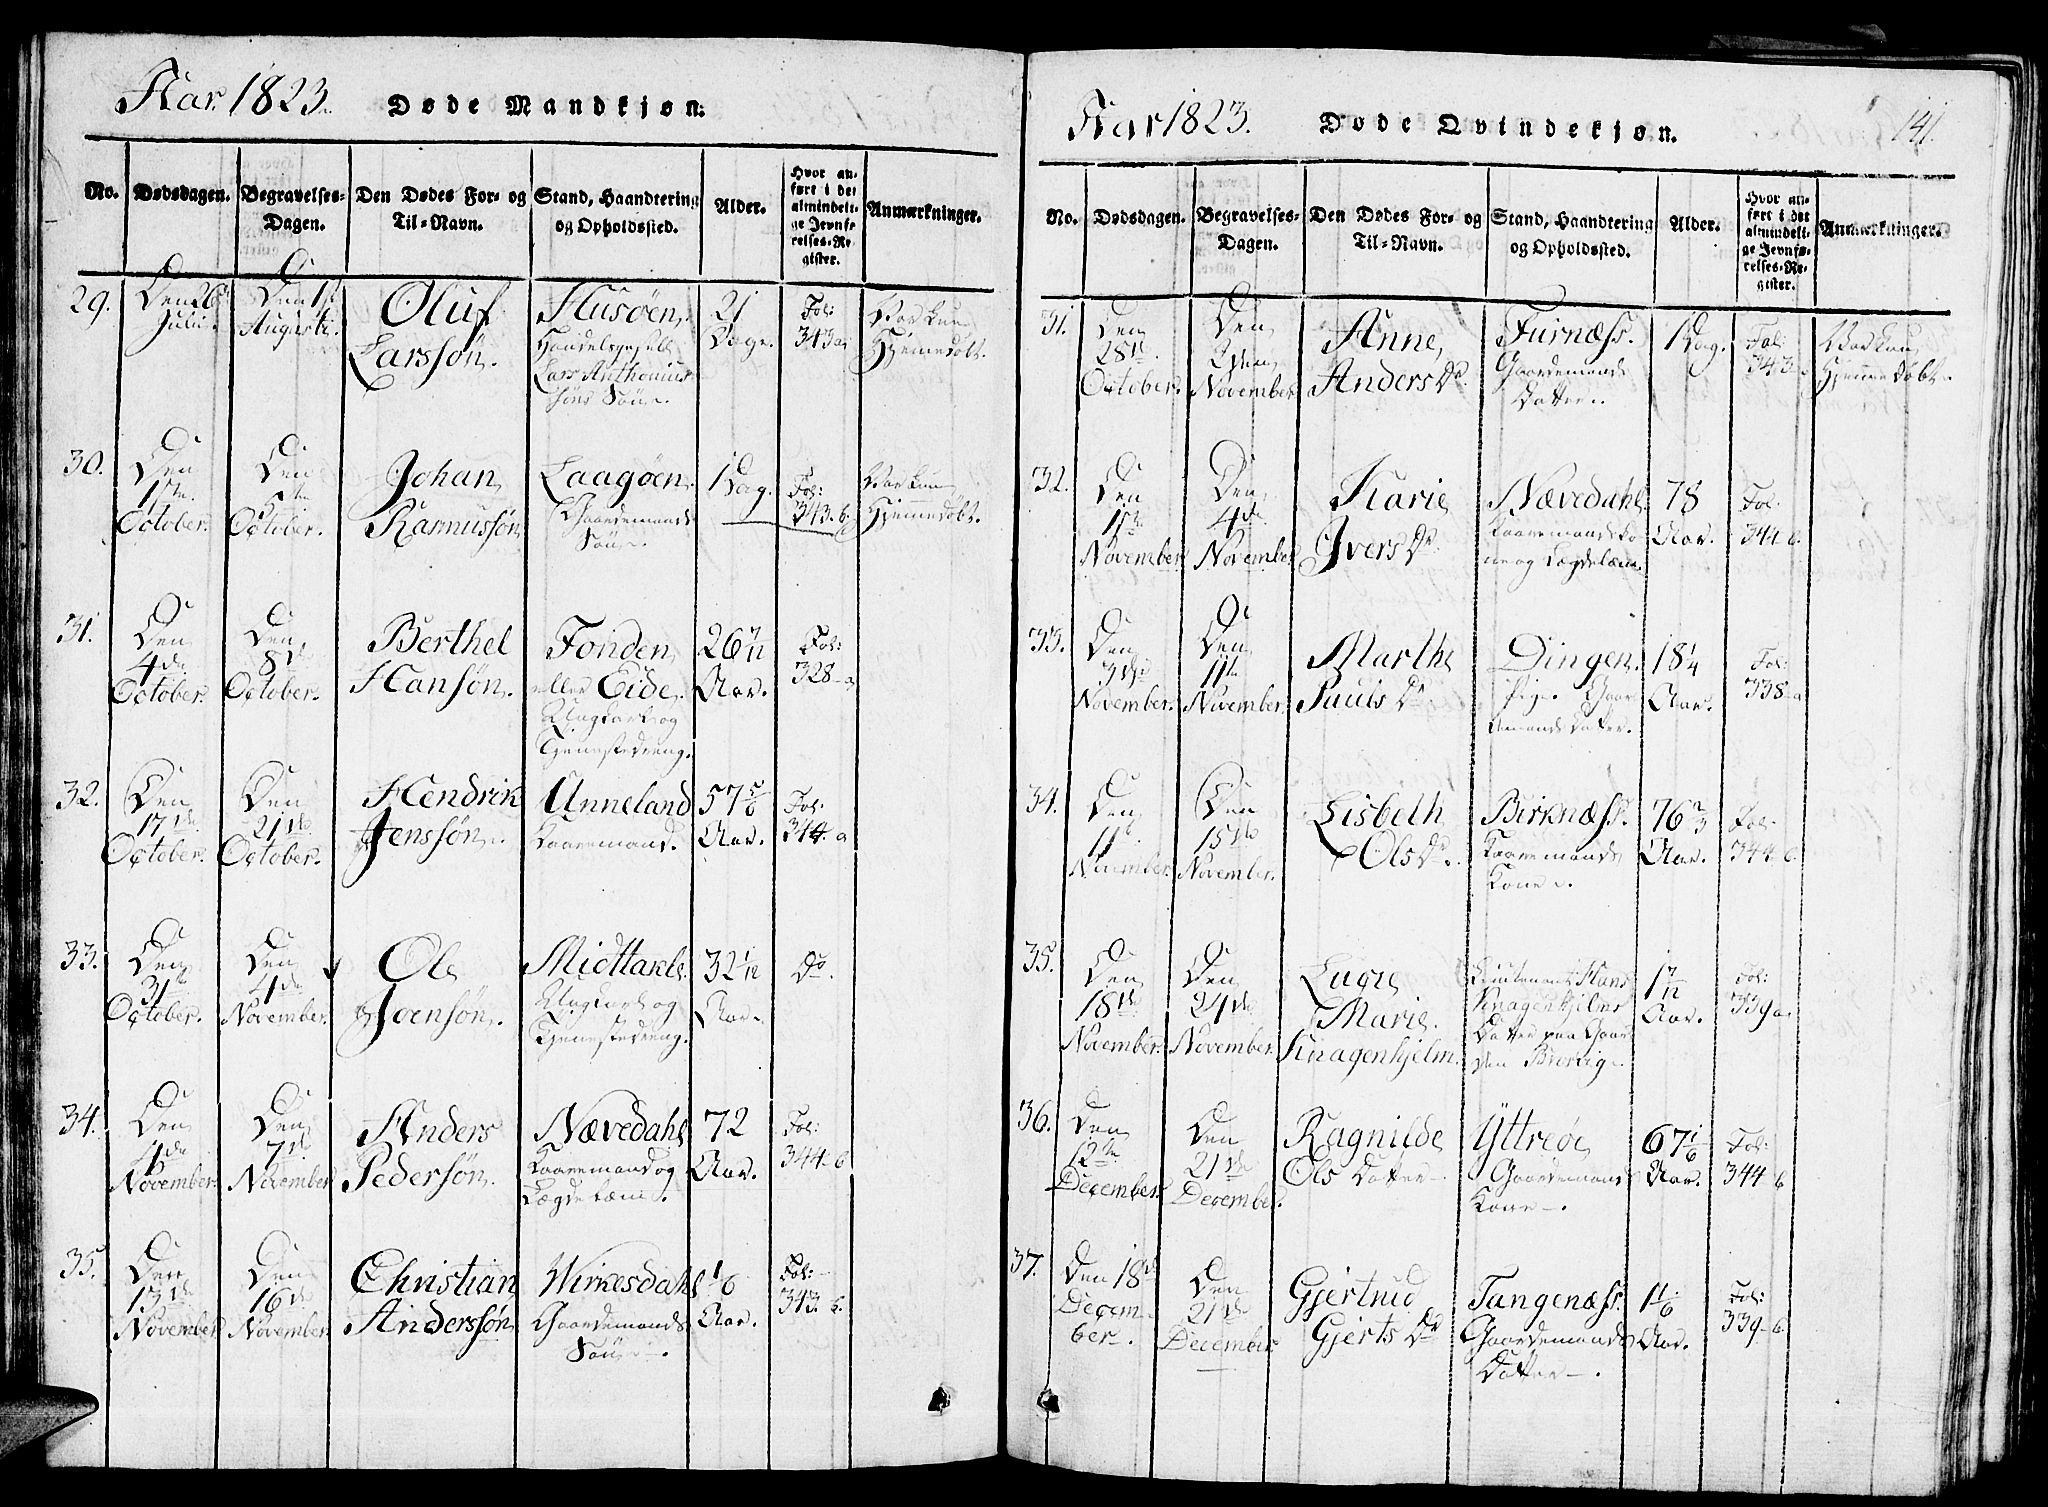 Aar 1823. Døde Mandkjøn.
No. Dødsdagen. Begravelses-Dagen. Den Dødes For- og Til-Navn. Stand, Haandtering og Opholdssted. Alder. Hvor anført i det almindelige Jevnførelses-Register. Anmærkninger.
29. Den 26 Julii. Den 1ste Augusti. Oluf Larssøn. Husøen. Handelsgesell Lars Anthonius søns Søn. 21 Dage. Fol: 343 a Var kun Hjemmedøbt.
30. Den 1ste October. Den 5te October. Johan Rasmussøn Laagøen. Gaardemands Søn. 1 Dag. Fol: 343. b. Var kun Hjemmedøbt.
31. Den 4de October. Den 8de October. Berthel Hansøn. Fonden eller Eide. Ungkarl og Tjenestedreng. 26 7/11 Aar. Fol: 328 a
32. Den 17de October. Den 21de October. Hendrik Jenssøn. Unneland Kaaremand. 57 5/6 Aar. Fol: 344 a
33. Den 31te October. Den 4de November. Ole Joensøn. Midttakle. Ungkarl og Tjenestedreng. 32 1/12 Aar. Do.
34. Den 4de November. Den 7de November Anders Pedersøn. Nævedahl Kaaremand og Lægdslem. 72 Aar. Fol: 344 b
35. Den 13de November Den 16de November. Christian Anderssøn Wirkesdahl Gaardemands Søn. 1/6 Aar. Fol: 343. b.
Aar 1823. Døde Qvindekjøn. 141.
No. Dødsdagen. Begravelses-Dagen. Den Dødes For- og Til-Navn. Stand, Haandtering og Opholdssted. Alder. Hvor anført i det almindelige Jevnførelses-Register. Anmærkninger.
31. Den 28de October. Den November Anne Anders Dr. Furnæss. Gaardemands Datter. 1 Dag. Fol: 343 Var kun Hjemmedøbt.
32. Den 1ste November Den 4de November. Karie Ivers Dr. Nævedahl Kaaremands Kone og Lægdslem. 78 Aar. Fol. 344 b.
33. Den 3die November. Den 11te November. Marthe Pouls Dr Dingen. Pige. Gaardemands Datter. 18 1/4 Aar. Fol: 338 a
34. Den 11te November. Den 15de November. Lisbeth Ols Dr. Birknæss. Kaaremands Kone. 76 2/3 Aar. Fol. 344 b.
35. Den 18de November. Den 24de November. Lucie Marie Knagenhjelm. Lieutenant Hans Knagenhjelms Datter paa Gaarden 1 7/12 Aar. Fol: 339 a.
36. Den 12te December. Den 21de December. Ragnilde Ols Datter. Yttrøe Gaardemands Kone. 67 1/6 Aar. Fol: 344 b
37. Den 18de December. Den 21de December Gjertrud Gjerts Dr Tangenæss. Gaardemands Datter. 1 1/6 Aar. Fol: 339 b.